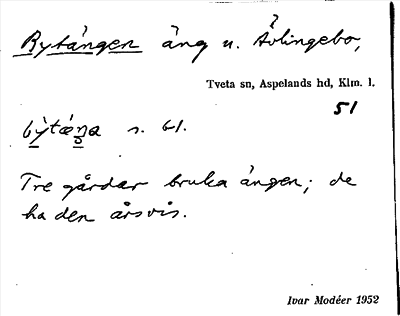 Bytången äng u. Åvlingebo,
Tveta sn, Aspelands hd, Klm. l.
51
bỳtæŋa s. 61.
Tre gårdar bruka ängen; de
ha den årsvis.
Ivar Modéer 1952